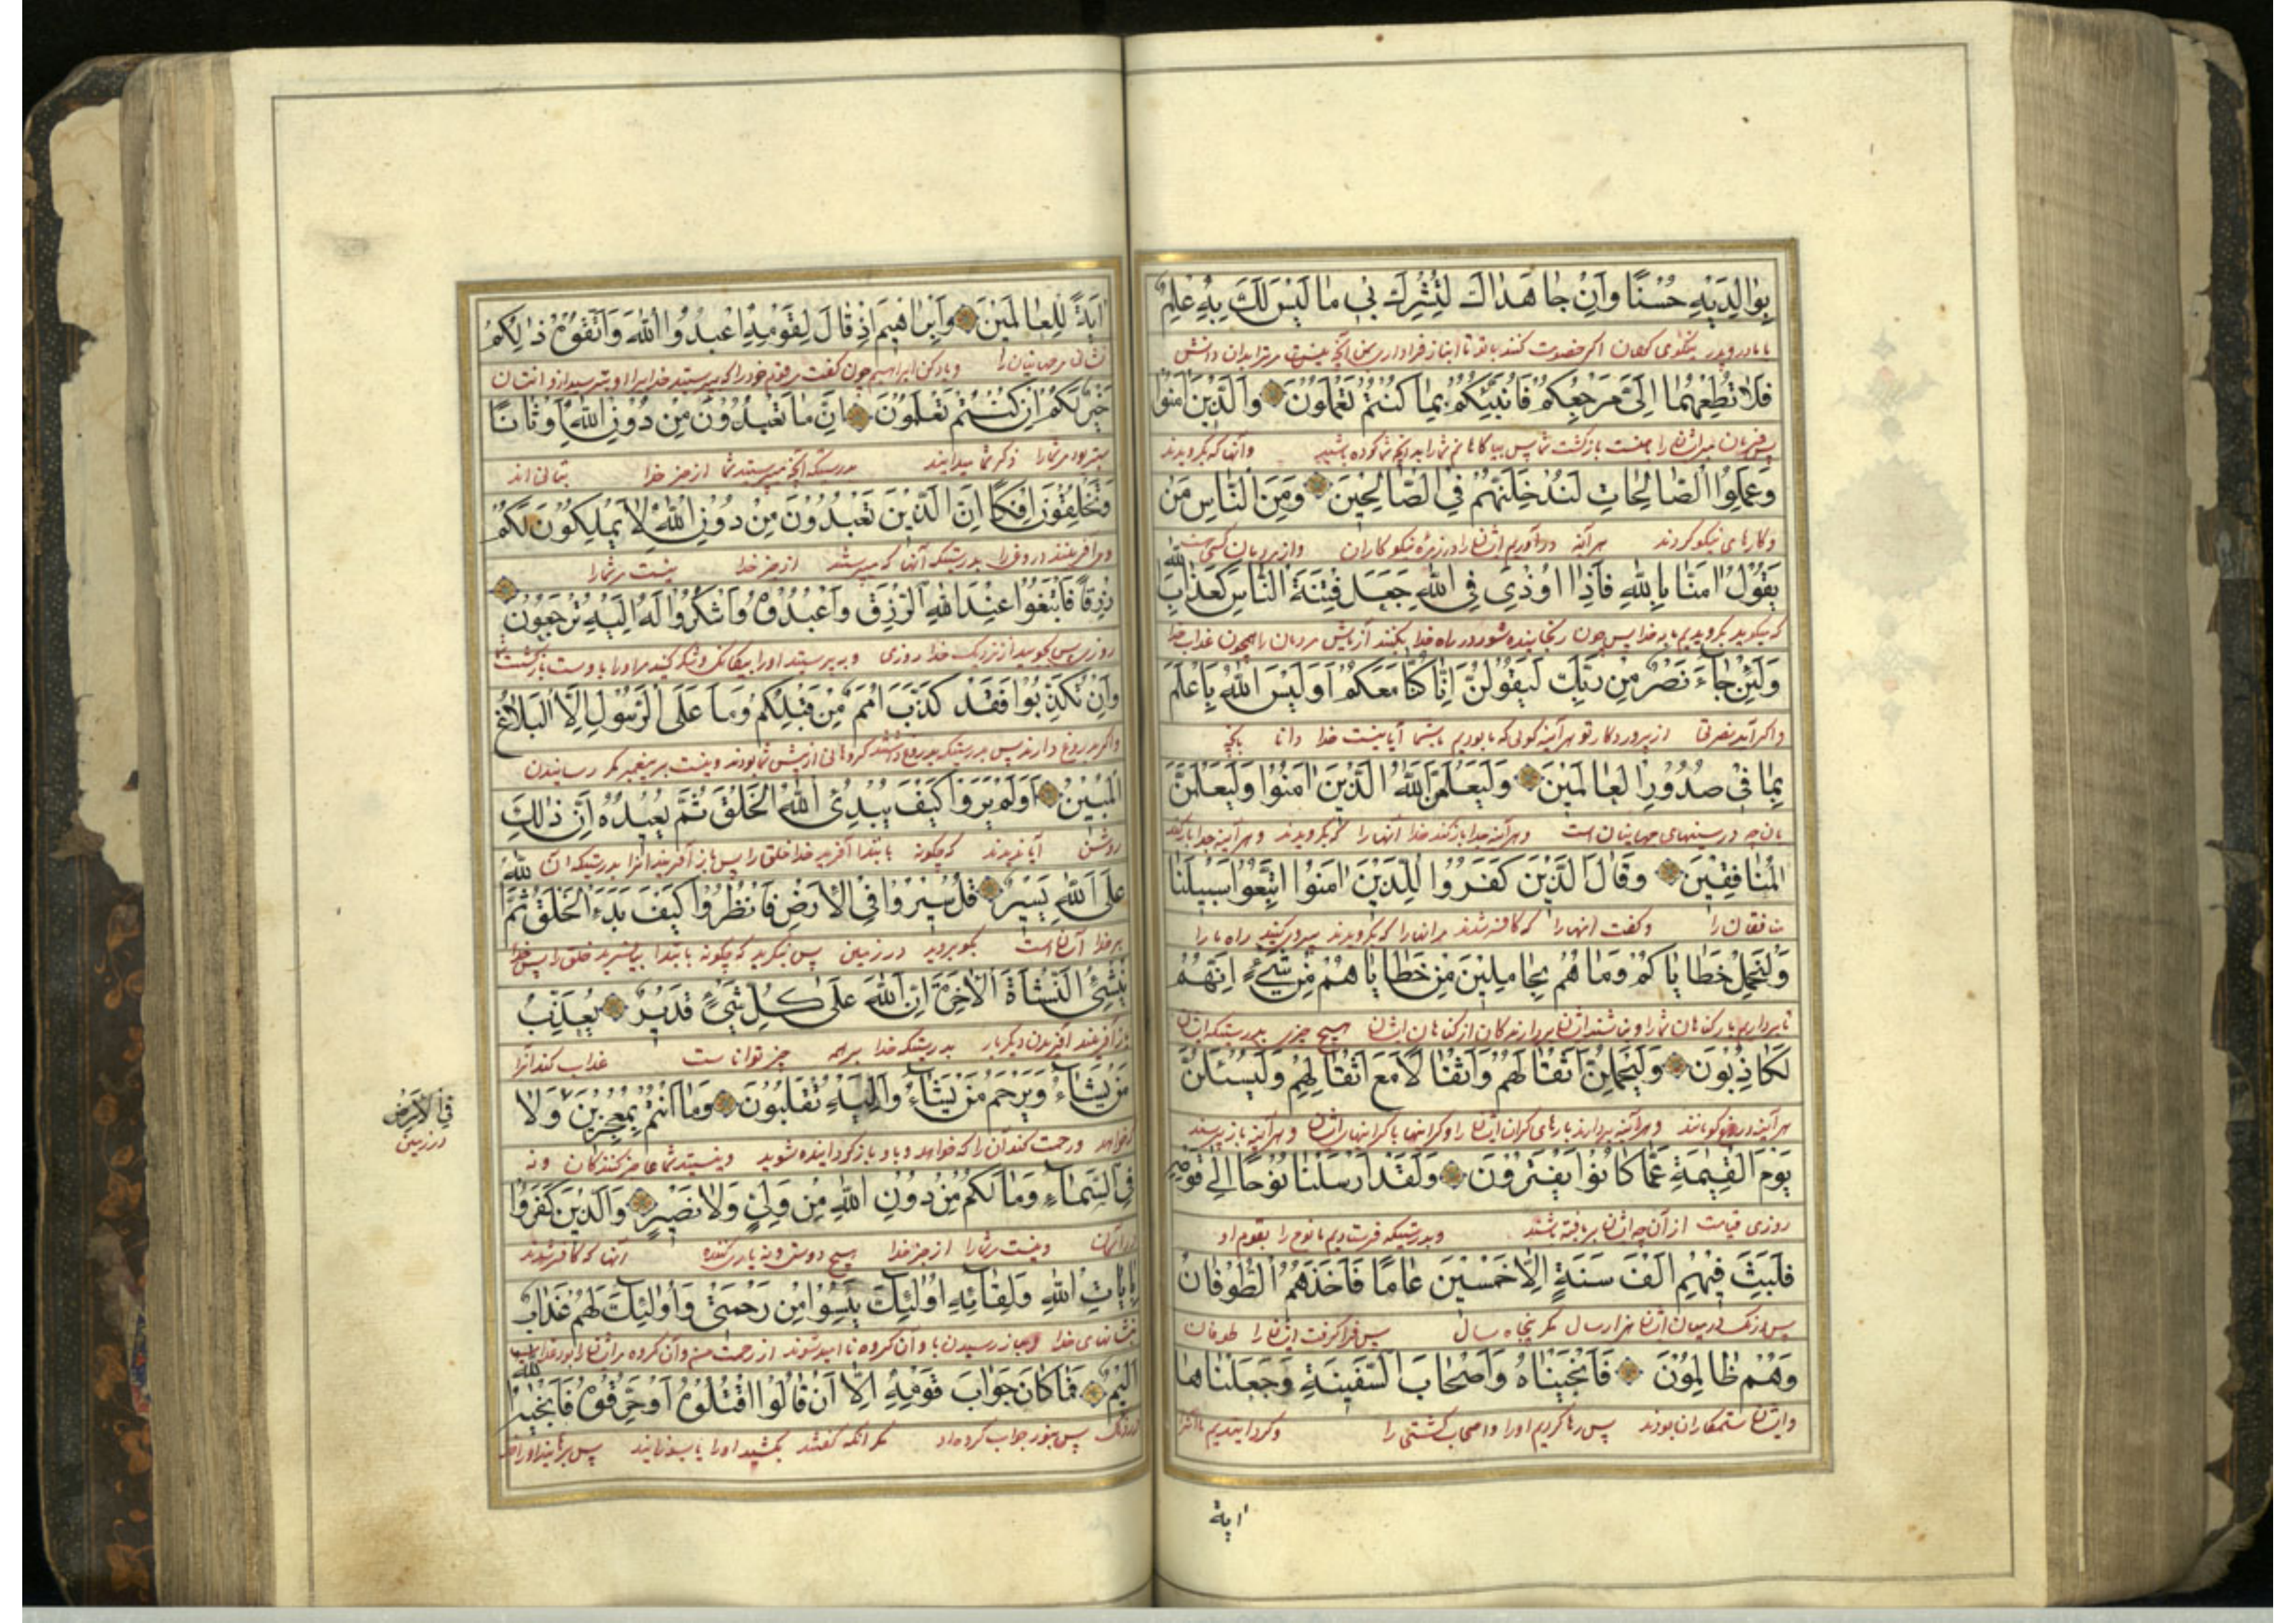 بِوَالِدَيْهِ حُسْنًا وَاِنْ جَاهَدَاكَ لِتُشْرِكَ بِى مَا لَيْسَ لَكَ بِهِ عِلْمٌ
با مادر و پدر نیکوی کردن اگر خصومت کنند با تو تا انباز فرا دارى بمن آنچه نیست مر ترا بدان دانش
فَلَا تُطِعْهُمَا اِلَىَّ مَرْجِعُكُمْ فَاُنَبِّئُكُمْ بِمَا كُنْتُمْ تَعْمَلُونَ وَالَّذِينَ اٰمَنُوا
پس فرمان مبر ایشان را بمنست بازگشت شما پس بیاگاهانم شما را بدانچه شما کرده باشید وآنها که بگرویدند
وَعَمِلُوا الصَّالِحَاتِ لَنُدْخِلَنَّهُمْ فِى الصَّالِحِينَ وَمِنَ النَّاسِ مَنْ
وکارهای نیکو کردند هرآینه درآوریم ایشان را در زمره نیکوکاران واز مردمان کسی هست
يَقُولُ اٰمَنَّا بِاللهِ فَاِذَا اُوذِىَ فِى اللهِ جَعَلَ فِتْنَةَ النَّاسِ كَعَذَابِ الله
که میگوید بگرویدیم ما بخدا پس چون رنجانیده شود در راه خدا بکنند آزمایش مردمان را همچون عذاب خدا
وَلَئِنْ جَاءَ نَصْرٌ مِنْ رَبِّكَ لَيَقُولُنَّ اِنَّا كُنَّا مَعَكُمْ اَوَلَيْسَ اللهُ بِاَعْلَمَ
واگر آید نصرتی از پروردگار تو هرآینه گوئی که ما بودیم با شما آیا نیست خدا دانا
بِمَا فِى صُدُورِ الْعَالَمِينَ وَلَيَعْلَمَنَّ اللهُ الَّذِينَ اٰمَنُوا وَلَيَعْلَمَنَّ
بآن چه در سینهای جهانیان است وهرآینه جدا باز کند خدا آنها را که بگرویدند وهرآینه جدا باز کند
الْمُنَافِقِينَ وَقَالَ الَّذِينَ كَفَرُوا لِلَّذِينَ اٰمَنُوا اتَّبِعُوا سَبِيلَنَا
منافقان را وگفت آنها را که کافر شدند مر آنها را که بگرویدند پیروی کنید راه ما را
وَلْنَحْمِلْ خَطَايَاكُمْ وَمَا هُمْ بِحَامِلِينَ مِنْ خَطَايَاهُمْ مِنْ شَىْءٍ اِنَّهُمْ
تا برداریم بار گناهان شما را ونباشند ایشان بردارندکان از گناهان ایشان هیچ چیزی بدرستیکه ایشان
لَكَاذِبُونَ وَلَيَحْمِلُنَّ اَثْقَالَهُمْ وَاَثْقَالًا مَعَ اَثْقَالِهِمْ وَلَيُسْئَلُنَّ
هرآینه دروغ گویانند وهرآینه بردارند بارهای گران ایشان را وگرانیها با گرانیهای ایشان وهرآینه باز پرسند
يَوْمَ الْقِيٰمَةِ عَمَّا كَانُوا يَفْتَرُونَ وَلَقَدْ اَرْسَلْنَا نُوحًا اِلٰى قَوْمِهِ
روزی قیامت از آن چه ایشان بر بافته باشند وبدرستیکه فرستادیم ما نوح را بقوم او
فَلَبِثَ فِيهِمْ اَلْفَ سَنَةٍ اِلَّا خَمْسِينَ عَامًا فَاَخَذَهُمُ الطُّوفَانُ
پس درنگ در میان ایشان هزار سال مگر پنجاه سال پس فرا گرفت ایشان را طوفان
وَهُمْ ظَالِمُونَ فَاَنْجَيْنَاهُ وَاَصْحَابَ السَّفِينَةِ وَجَعَلْنَاهَا
وایشان ستمکاران بودند پس رها کردیم او را واصحاب کشتی را وگردانیدیم ما آنرا
اٰية
اٰيَةً لِلْعَالَمِينَ وَاِبْرَاهِيمَ اِذْ قَالَ لِقَوْمِهِ اعْبُدُوا اللهَ وَاتَّقُوهُ ذٰلِكُمْ
نشان مر جهانیان را ویاد کن ابراهیم چون گفت مر قوم خود را که بپرستید خدایرا وبترسید ازو آنتان
خَيْرٌ لَكُمْ اِنْ كُنْتُمْ تَعْلَمُونَ اِنَّ مَا تَعْبُدُونَ مِنْ دُونِ اللهِ اَوْثَانًا
بهتر بود مر شما را اگر شما میدانید بدرستیکه آنچه میپرستید شما از جز خدا بتانی اند
وَتَخْلُقُونَ اِفْكًا اِنَّ الَّذِينَ تَعْبُدُونَ مِنْ دُونِ اللهِ لَا يَمْلِكُونَ لَكُمْ
ومی آفرینند دروغ را بدرستیکه آنها که میپرستند از جز خدا نیست مر شما را
رِزْقًا فَابْتَغُوا عِنْدَ اللهِ الرِّزْقَ وَاعْبُدُوهُ وَاشْكُرُوا لَهُ اِلَيْهِ تُرْجَعُونَ
روزی پس بجویید از نزدیک خدا روزی وبپرستید او را وشکر کنید مر او را با وست بازگشت
وَاِنْ تُكَذِّبُوا فَقَدْ كَذَّبَ اُمَمٌ مِنْ قَبْلِكُمْ وَمَا عَلَى الرَّسُولِ اِلَّا الْبَلَاغُ
واگر بدروغ دارند پس بدرستیکه بدروغ داشتند گروهانی از پیش شما بودند ونیست بر پیغمبر مگر رسانیدن
الْمُبِينُ اَوَلَمْ يَرَوْا كَيْفَ يُبْدِئُ اللهُ الْخَلْقَ ثُمَّ يُعِيدُهُ اِنَّ ذٰلِكَ
روشن آیا ندیدند که چگونه بابتدا آفرید خدا خلق را پس باز آفریند آنرا بدرستیکه آن
عَلَى اللهِ يَسِيرٌ قُلْ سِيرُوا فِى الْاَرْضِ فَانْظُرُوا كَيْفَ بَدَءَ الْخَلْقَ ثُمَّ الله
بر خدا آسان است بگو بروید در زمین پس بنگرید که چگونه بابتدا بیافرید خلق را پس خدا
يُنْشِئُ النَّشْاَةَ الْاٰخِرَةَ اِنَّ اللهَ عَلٰى كُلِّ شَىْءٍ قَدِيرٌ يُعَذِّبُ
باز آفریند آفریدن دیگر بار بدرستیکه خدا بر همه چیز تواناست عذاب کند آنرا
مَنْ يَشَاءُ وَيَرْحَمُ مَنْ يَشَاءُ وَاِلَيْهِ تُقْلَبُونَ وَمَا اَنْتُمْ بِمُعْجِزِينَ وَلَا
که خواهد ورحمت کند آن را که خواهد وباو باز گردانیده شوید ونیستید شما عاجز کنندکان ونه
فِى الْاَرْضِ
در زمین
فِى السَّمَاءِ وَمَا لَكُمْ مِنْ دُونِ اللهِ مِنْ وَلِىٍّ وَلَا نَصِيرٍ وَالَّذِينَ كَفَرُوا
در آسمان ونیست مر شما را از جز خدا هیچ دوستی ونه یاری کننده آنها که کافر شدند
بِاٰيَاتِ اللهِ وَلِقَائِهِ اُولٰئِكَ يَئِسُوا مِنْ رَحْمَتِى وَاُولٰئِكَ لَهُمْ عَذَابٌ
بنشانهای خدا وبباز رسیدن باو آن گروه ناامید شوند از رحمت من وآن گروه مر ایشان را بود عذاب
اَلِيمٌ فَمَا كَانَ جَوَابَ قَوْمِهِ اِلَّا اَنْ قَالُوا اقْتُلُوهُ اَوْ حَرِّقُوهُ فَاَنْجٰيهُ الله
دردناک پس نبود جواب گروه او مگر آنکه گفتند بکشید او را یا بسوزانید پس برهانید او را خدا